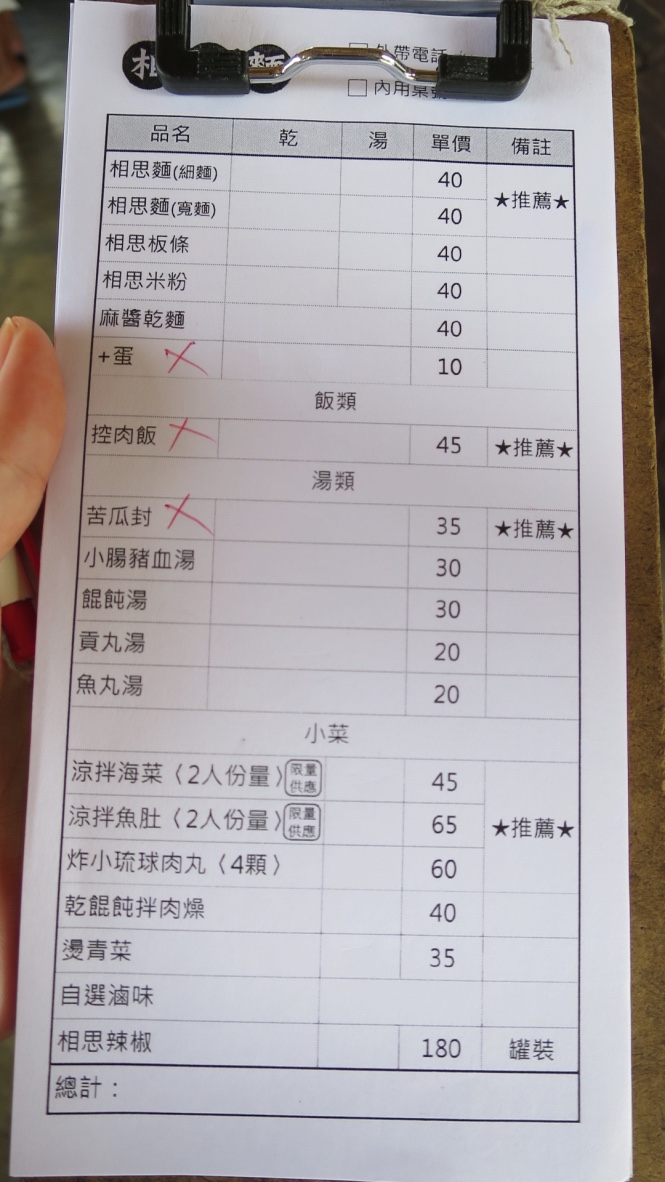 麵
□ 外帶電話
□ 內用桌號
品名 乾 湯 單價 備註
相思麵(細麵) 40 ★推薦★
相思麵(寬麵) 40
相思板條 40
相思米粉 40
麻醬乾麵 40
+蛋 ✗ 10
飯類
控肉飯 ✗ 45 ★推薦★
湯類
苦瓜封 ✗ 35 ★推薦★
小腸豬血湯 30
餛飩湯 30
貢丸湯 20
魚丸湯 20
小菜
涼拌海菜〈2人份量〉限量供應 45
涼拌魚肚〈2人份量〉限量供應 65 ★推薦★
炸小琉球肉丸〈4顆〉 60
乾餛飩拌肉燥 40
燙青菜 35
自選滷味
相思辣椒 180 罐裝
總計：